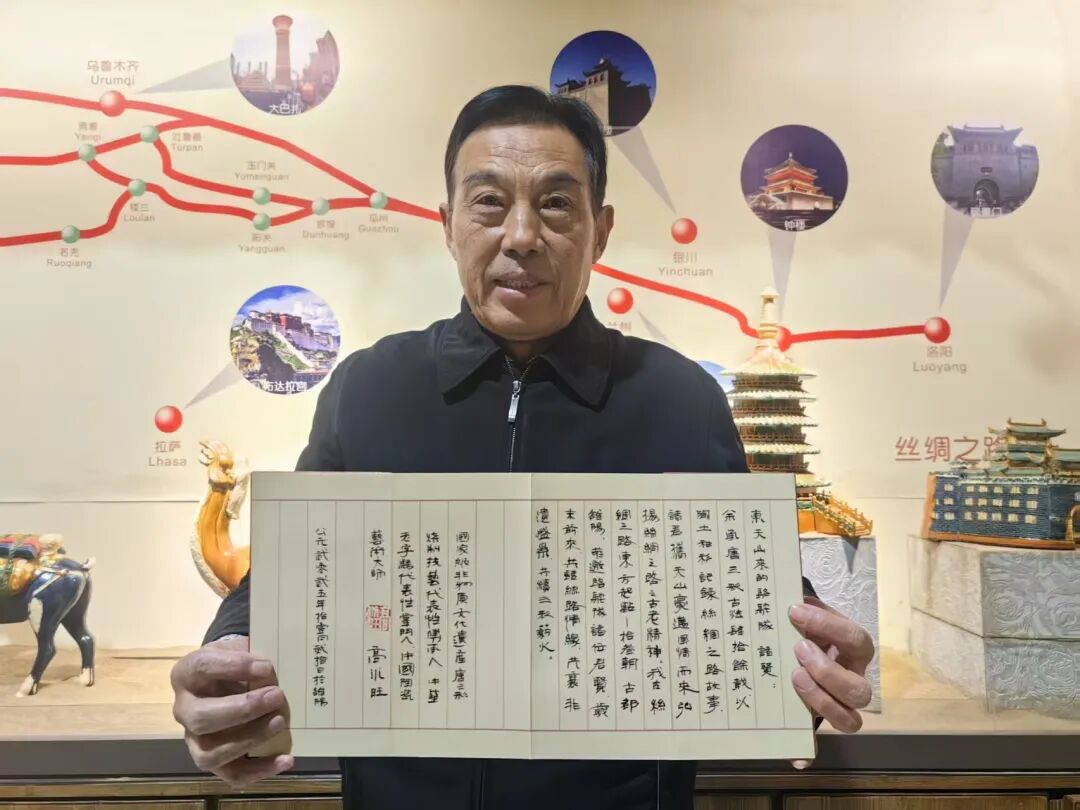 乌鲁木齐
Urumqi
大巴扎
焉耆
Yanqi
吐鲁番
Turpan
玉门关
Yumenguan
楼兰
Loulan
阳关
Yangguan
敦煌
Dunhuang
瓜州
Guazhou
若羌
Ruoqiang
银川
Yinchuan
兰州
钟楼
洛阳
Luoyang
布达拉宫
拉萨
Lhasa
丝绸之路
東天山來的駱駝隊諸賢：
余守唐三彩古法肆拾餘載，以
陶土和彩記錄絲綢之路故事，
諸君攜天山豪邁風情而來弘
揚絲綢之路之古老精神，我在絲
綢之路東方起點－拾叁朝古都
雒陽，恭邀駱駝隊諸位君賢，歲
末前來，共歸絲路傳 ，共襄非
遺盛景，共續三彩薪火。
國家級非物质文化遺產唐三彩
燒制技藝代表性傳承人 中華
老字號代表性掌門人 中國陶瓷
藝術大師 高水旺
公元貳零貳五年拾壹月貳拾日於雒陽